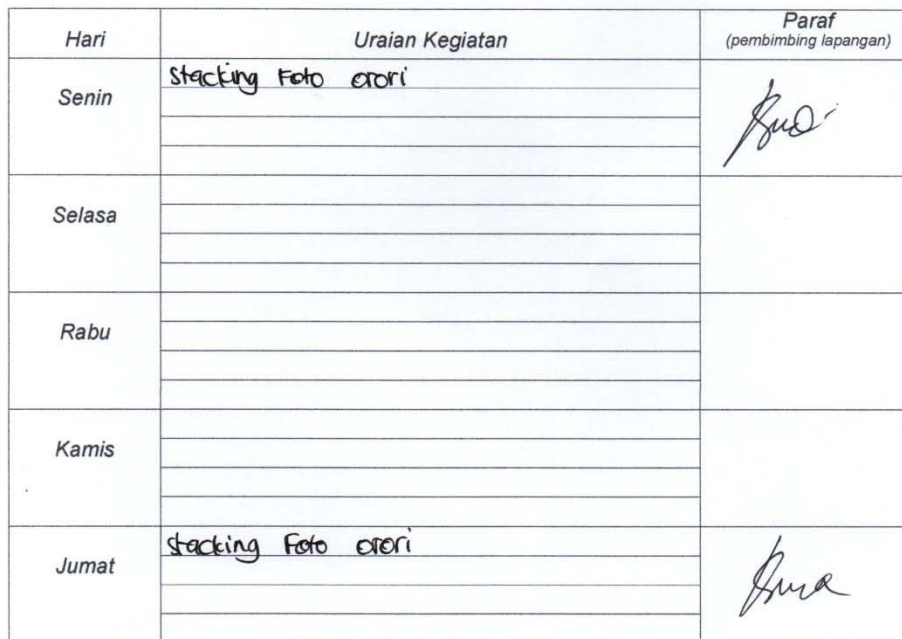 Hari Uraian Kegiatan Paraf
(pembimbing lapangan)
Senin stacking Foto orori
Selasa
Rabu
Kamis
Jumat stacking Foto orori